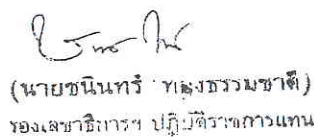 (นายชนินทร์ ทองธรรมชาติ)
รองเลขาธิการฯ ปฏิบัติราชการแทน